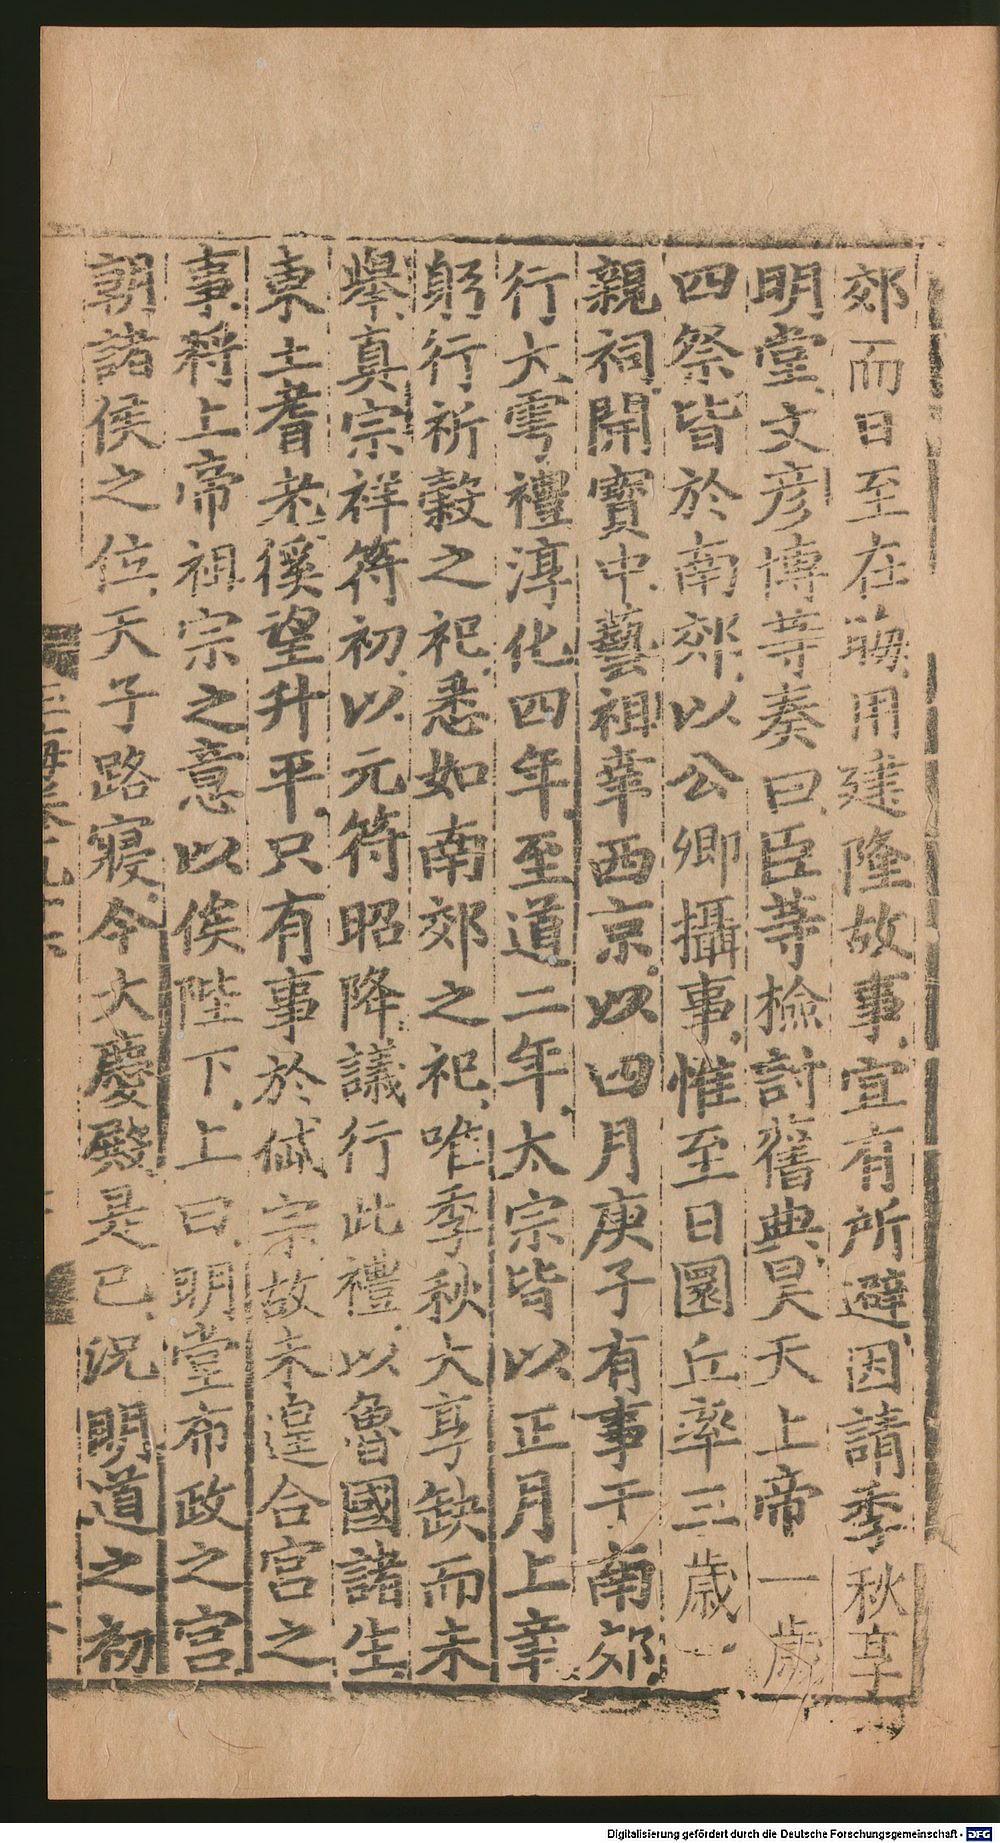 郊而日至在晦用建隆故事宜有所避因請季秋享
明堂文彦博等奏曰臣等檢討舊典昊天上帝一歲
四祭皆於南郊以公卿攝事惟至日圜丘率三歲一
親祠開寶中藝祖幸西京以四月庚子有事于南郊
行大雩禮淳化四年至道二年太宗皆以正月上辛
躬行祈穀之祀悉如南郊之祀唯季秋大享缺而未
舉真宗祥符初以元符昭降議行此禮以魯國諸生
東土耆老徯望升平只有事於岱宗故未遑合宮之
事將上帝祖宗之意以俟陛下上曰明堂布政之宮
朝諸侯之位天子路寢今大慶殿是已況明道之初
玉海卷九十六
Digitalisierung gefördert durch die Deutsche Forschungsgemeinschaft - DFG